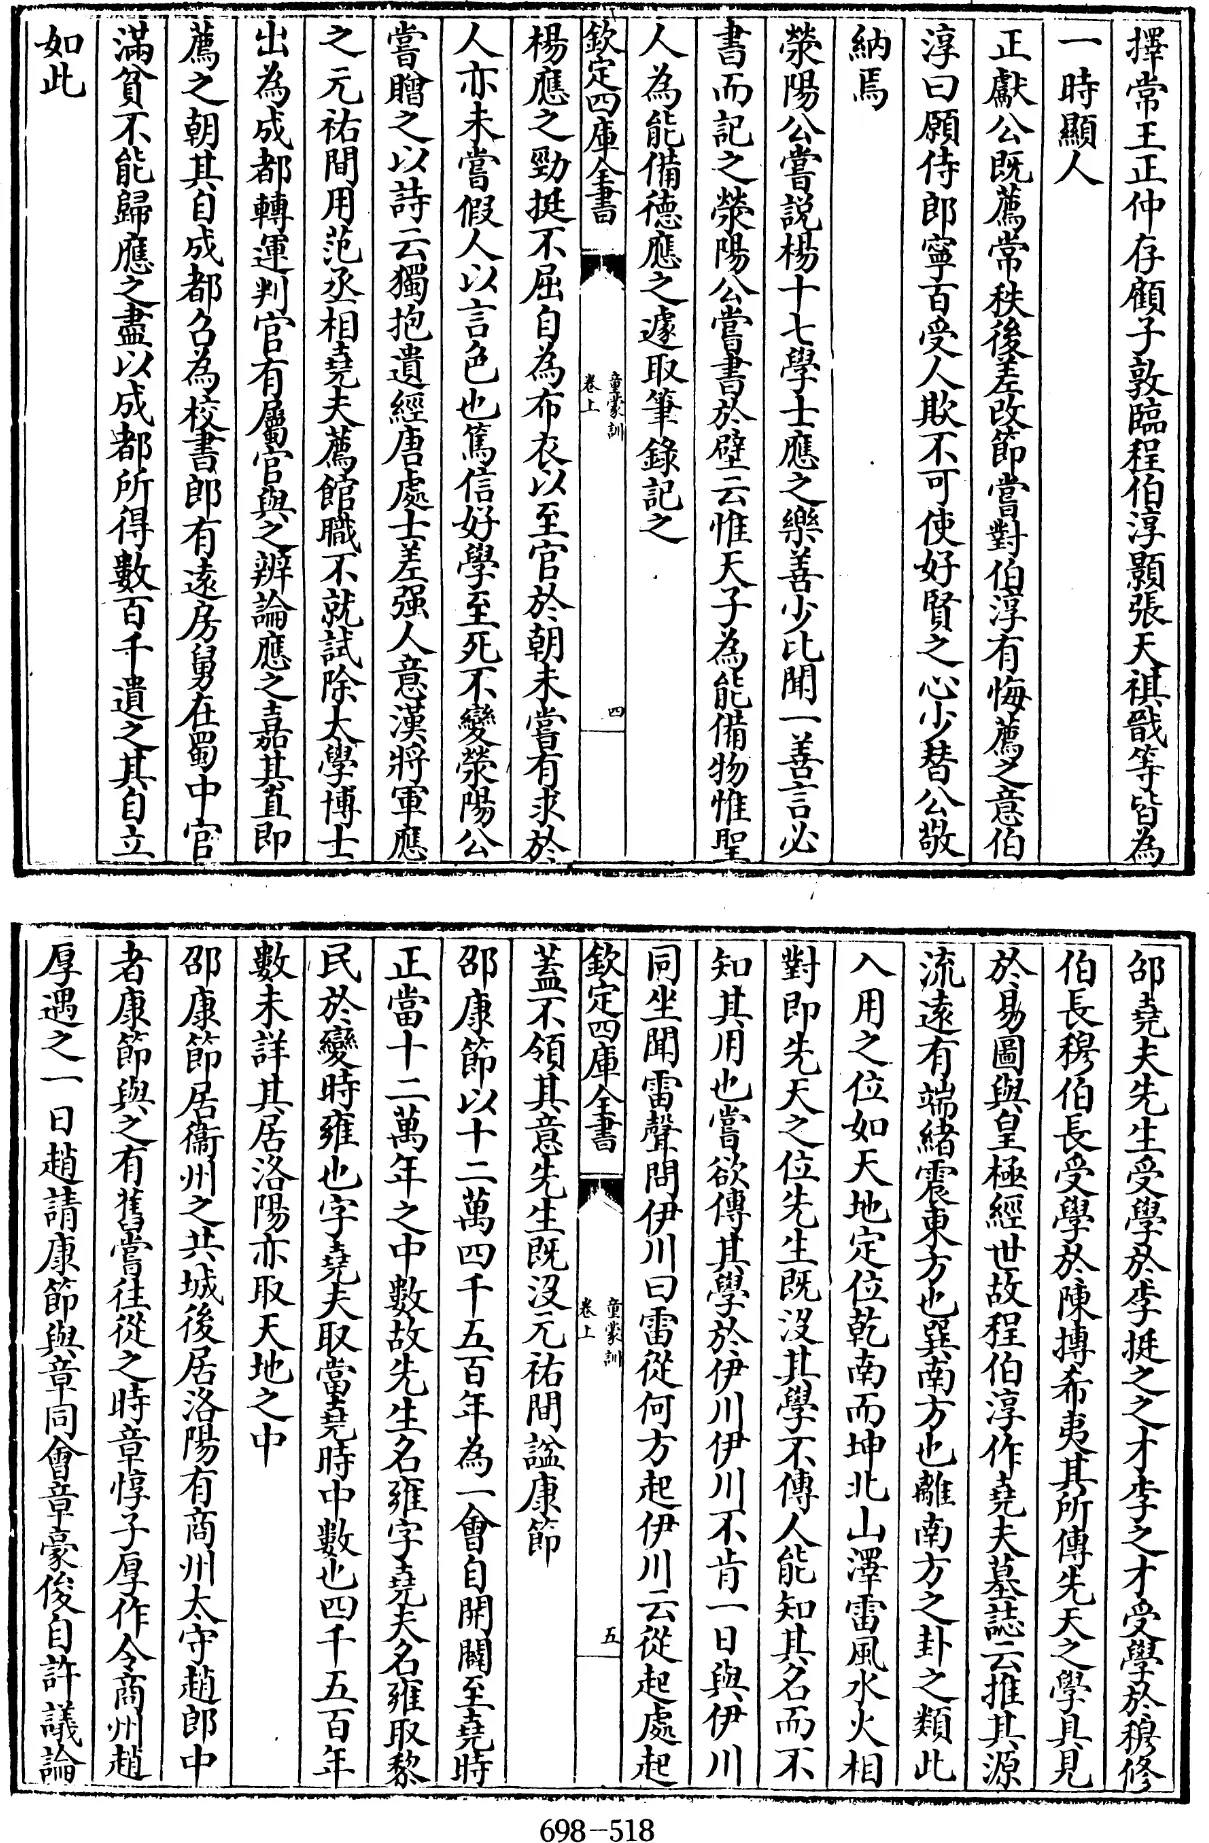 擇常王正仲存顧子敦臨程伯淳顥張天祺戩等皆為
一時顯人
正獻公既薦常秩後差改節嘗對伯淳有悔薦之意伯
淳曰願侍郎寧百受人欺不可使好賢之心少替公敬
納焉
滎陽公嘗説楊十七學士應之樂善少比聞一善言必
書而記之滎陽公嘗書於壁云惟天子為能備物惟聖
人為能備德應之遽取筆錄記之
欽定四庫全書
童蒙訓
卷上
四
楊應之勁挺不屈自為布衣以至官於朝未嘗有求於
人亦未嘗假人以言色也篤信好學至死不變滎陽公
嘗贈之以詩云獨抱遺經唐處士差强人意漢將軍應
之元祐間用范丞相堯夫薦館職不就試除太學博士
出為成都轉運判官有屬官與之辨論應之嘉其直即
薦之朝其自成都召為校書郎有遠房舅在蜀中官
滿貧不能歸應之盡以成都所得數百千遺之其自立
如此
邵堯夫先生受學於李挺之之才李之才受學於穆修
伯長穆伯長受學於陳摶希夷其所傳先天之學具見
於易圖與皇極經世故程伯淳作堯夫墓誌云推其源
流遠有端緒震東方也巽南方也離南方之卦之類此
入用之位如天地定位乾南而坤北山澤雷風水火相
對即先天之位先生既沒其學不傳人能知其名而不
知其用也嘗欲傳其學於伊川伊川不肯一日與伊川
同坐聞雷聲問伊川曰雷從何方起伊川云從起處起
欽定四庫全書
童蒙訓
卷上
五
蓋不領其意先生既沒元祐間諡康節
邵康節以十二萬四千五百年為一會自開闢至堯時
正當十二萬年之中數故先生名雍字堯夫名雍取黎
民於變時雍也字堯夫取當堯時中數也四千五百年
數未詳其居洛陽亦取天地之中
邵康節居衞州之共城後居洛陽有商州太守趙郎中
者康節與之有舊嘗往從之時章惇子厚作令商州趙
厚遇之一日趙請康節與章同會章豪俊自許議論
698-518